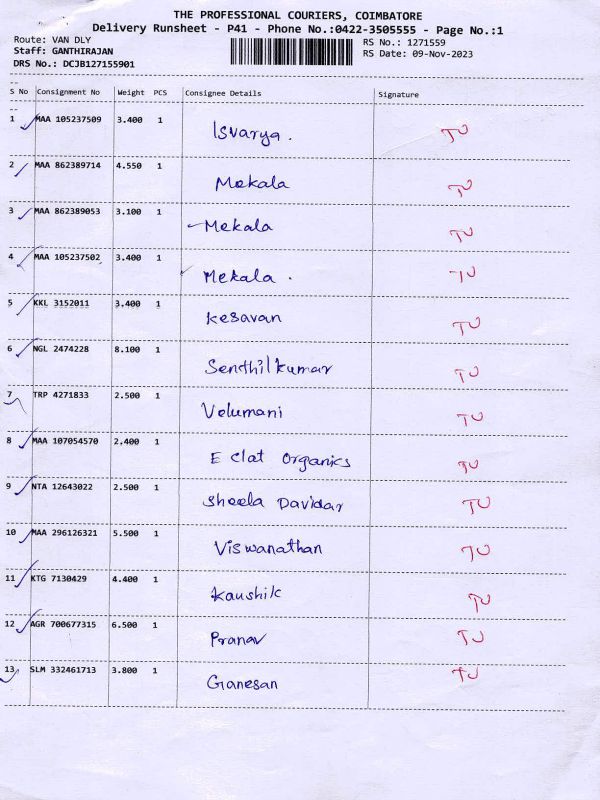 THE PROFESSIONAL COURIERS, COIMBATORE
Delivery Runsheet - P41 - Phone No.:0422-3505555 - Page No.:1
Route: VAN DLY RS No.: 1271559
Staff: GANTHIRAJAN RS Date: 09-Nov-2023
DRS No.: DCJB127155901
S No Consignment No Weight PCS Consignee Details Signature
1 MAA 105237509 3.400 1 Isvarya. TU
2 MAA 862389714 4.550 1 Mekala TU
3 MAA 862389053 3.100 1 Mekala TU
4 MAA 105237502 3.400 1 Mekala. TU
5 KKL 3152011 3.400 1 Kesavan TU
6 NGL 2474228 8.100 1 Senthilkumar TU
7 TRP 4271833 2.500 1 Velumani TU
8 MAA 107054570 2.400 1 E Clat Organics TU
9 NTA 12643022 2.500 1 Sheela Davidar TU
10 MAA 296126321 5.500 1 Viswanathan TU
11 KTG 7130429 4.400 1 Kaushik TU
12 AGR 700677315 6.500 1 Pranav TU
13 SLM 332461713 3.800 1 Ganesan TU